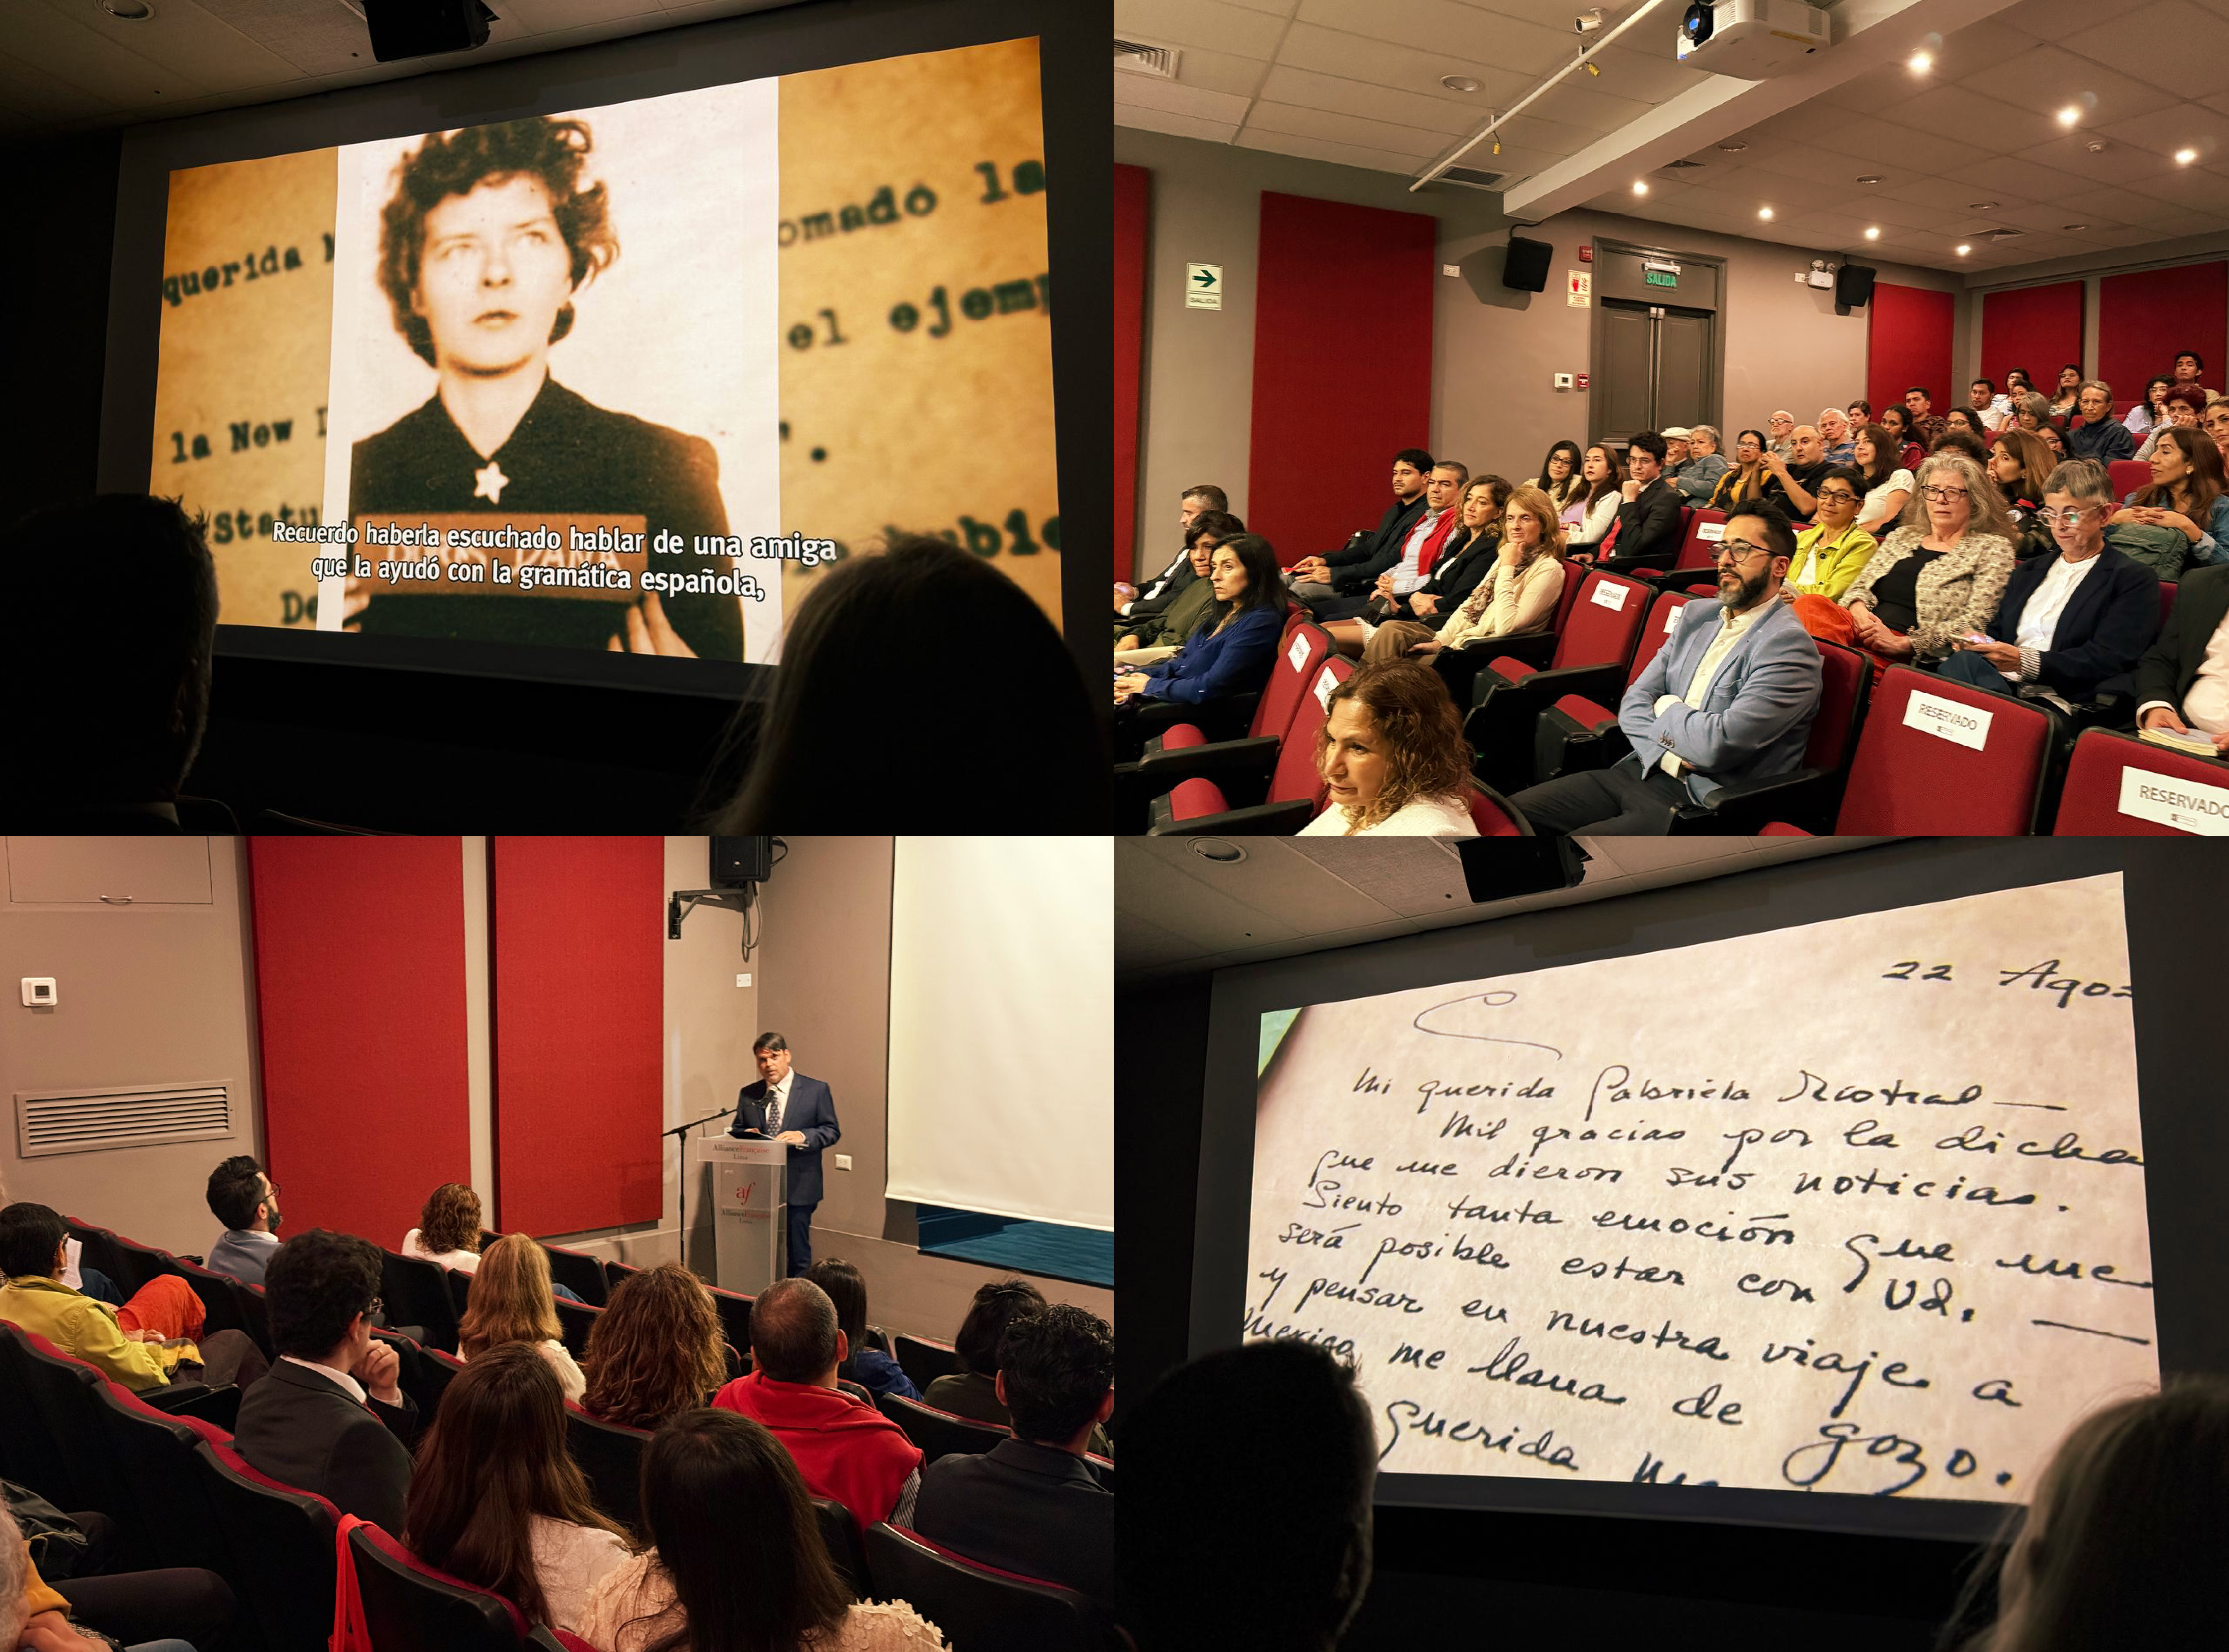 querida
omado la
el ejemp
la New
Statu
Recuerdo haberla escuchado hablar de una amiga
que la ayudó con la gramática española,
De
SALIDA
SALIDA
RESERVADO
RESERVADO
AllianceFrançaise
Lima
af
AllianceFrançaise
Lima
22 Agos
Mi querida Gabriela Mistral —
Mil gracias por la dicha
que me dieron sus noticias.
Siento tanta emoción que me
será posible estar con Ud. —
y pensar en nuestra viaje a
Mexico me llena de gozo.
querida